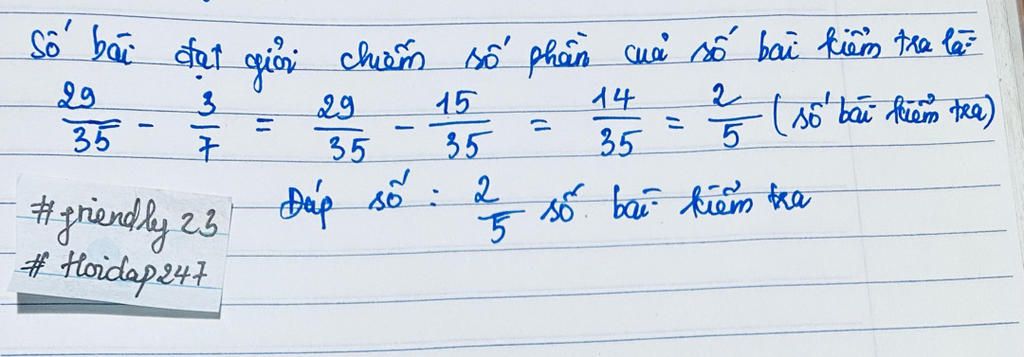 Số bài đạt giỏi chiếm số phần của số bài kiểm tra là:
29/35 - 3/7 = 29/35 - 15/35 = 14/35 = 2/5 (số bài kiểm tra)
Đáp số: 2/5 số bài kiểm tra
#friendly23
# Hoidap247